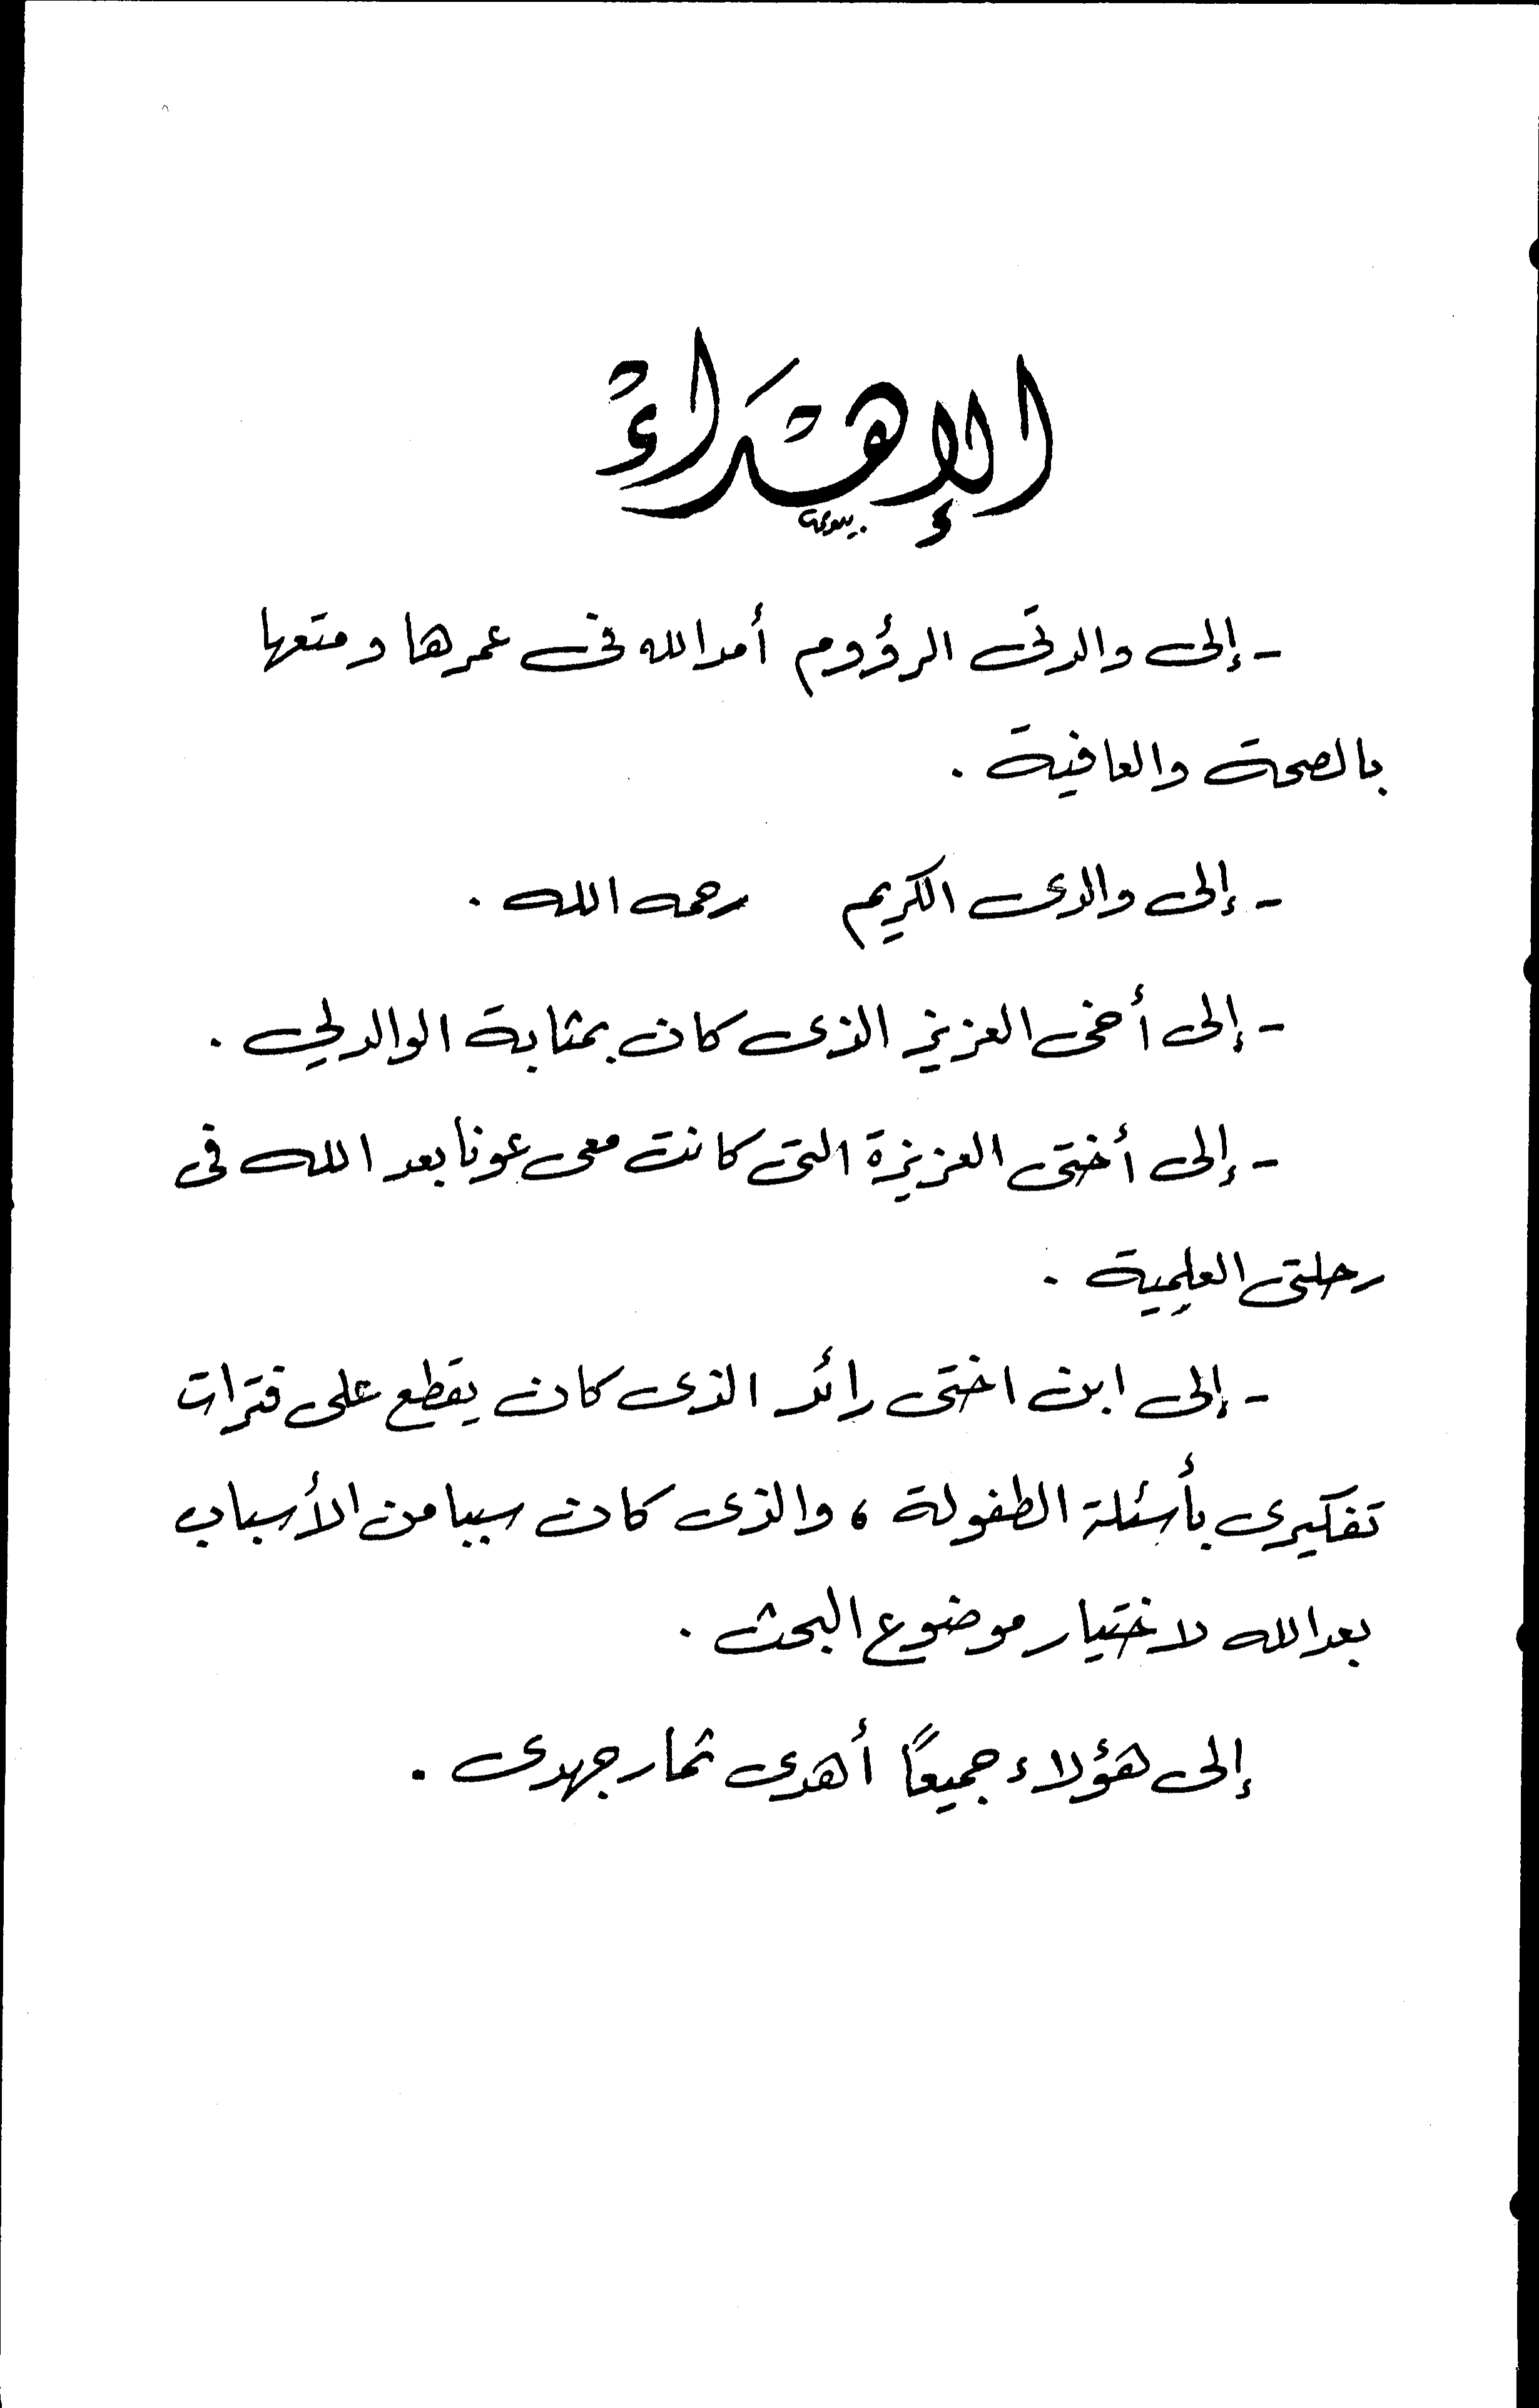 الإهداء
- إلى والدتى الرؤوم أمد الله فى عمرها ومتعها
بالصحة والعافية .
- إلى والدى الكريم رحمه الله .
- إلى أخى العزيز الذى كان بمثابة الوالد لي .
- إلى أختى العزيزة التى كانت معى عونا بعد الله فى
رحلتى العلمية .
- إلى ابن اختى رائد الذى كان يقطع على فترات
تفكيرى بأسئلة الطفولة ، والذى كان سببا من الأسباب
بعد الله لاختيار موضوع البحث .
إلى هؤلاء جميعًا أهدى ثمار جهدى .